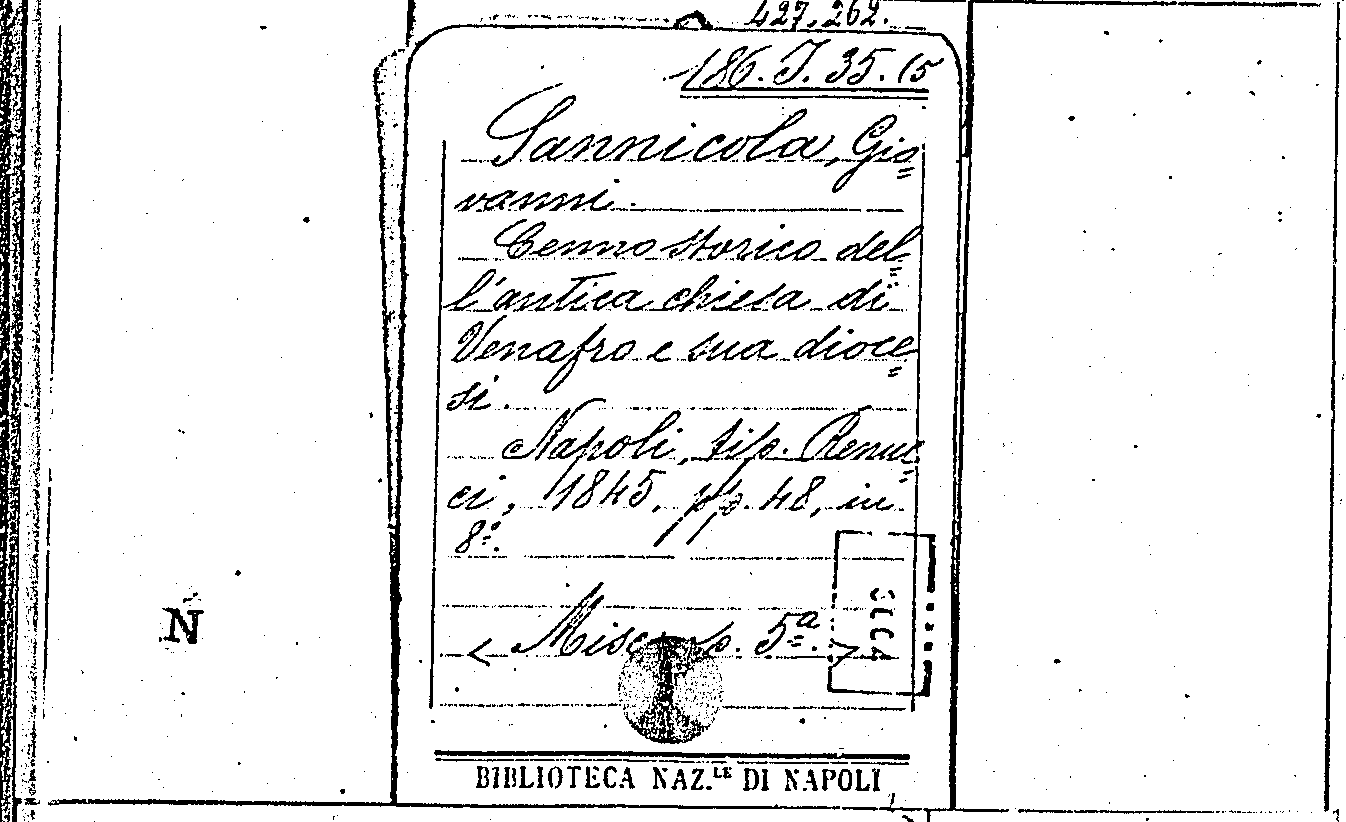 427.262.
186. J. 35. (5
Sannicola, Gio=
vanni.
Cenno storico del=
l'antica chiesa di
Venafro e sua dioce=
si.
Napoli, tip. Renuc=
ci, 1845. pp. 48, in
8º.
< Misc. p. 5ª. >
N
BIBLIOTECA NAZ.LE DI NAPOLI